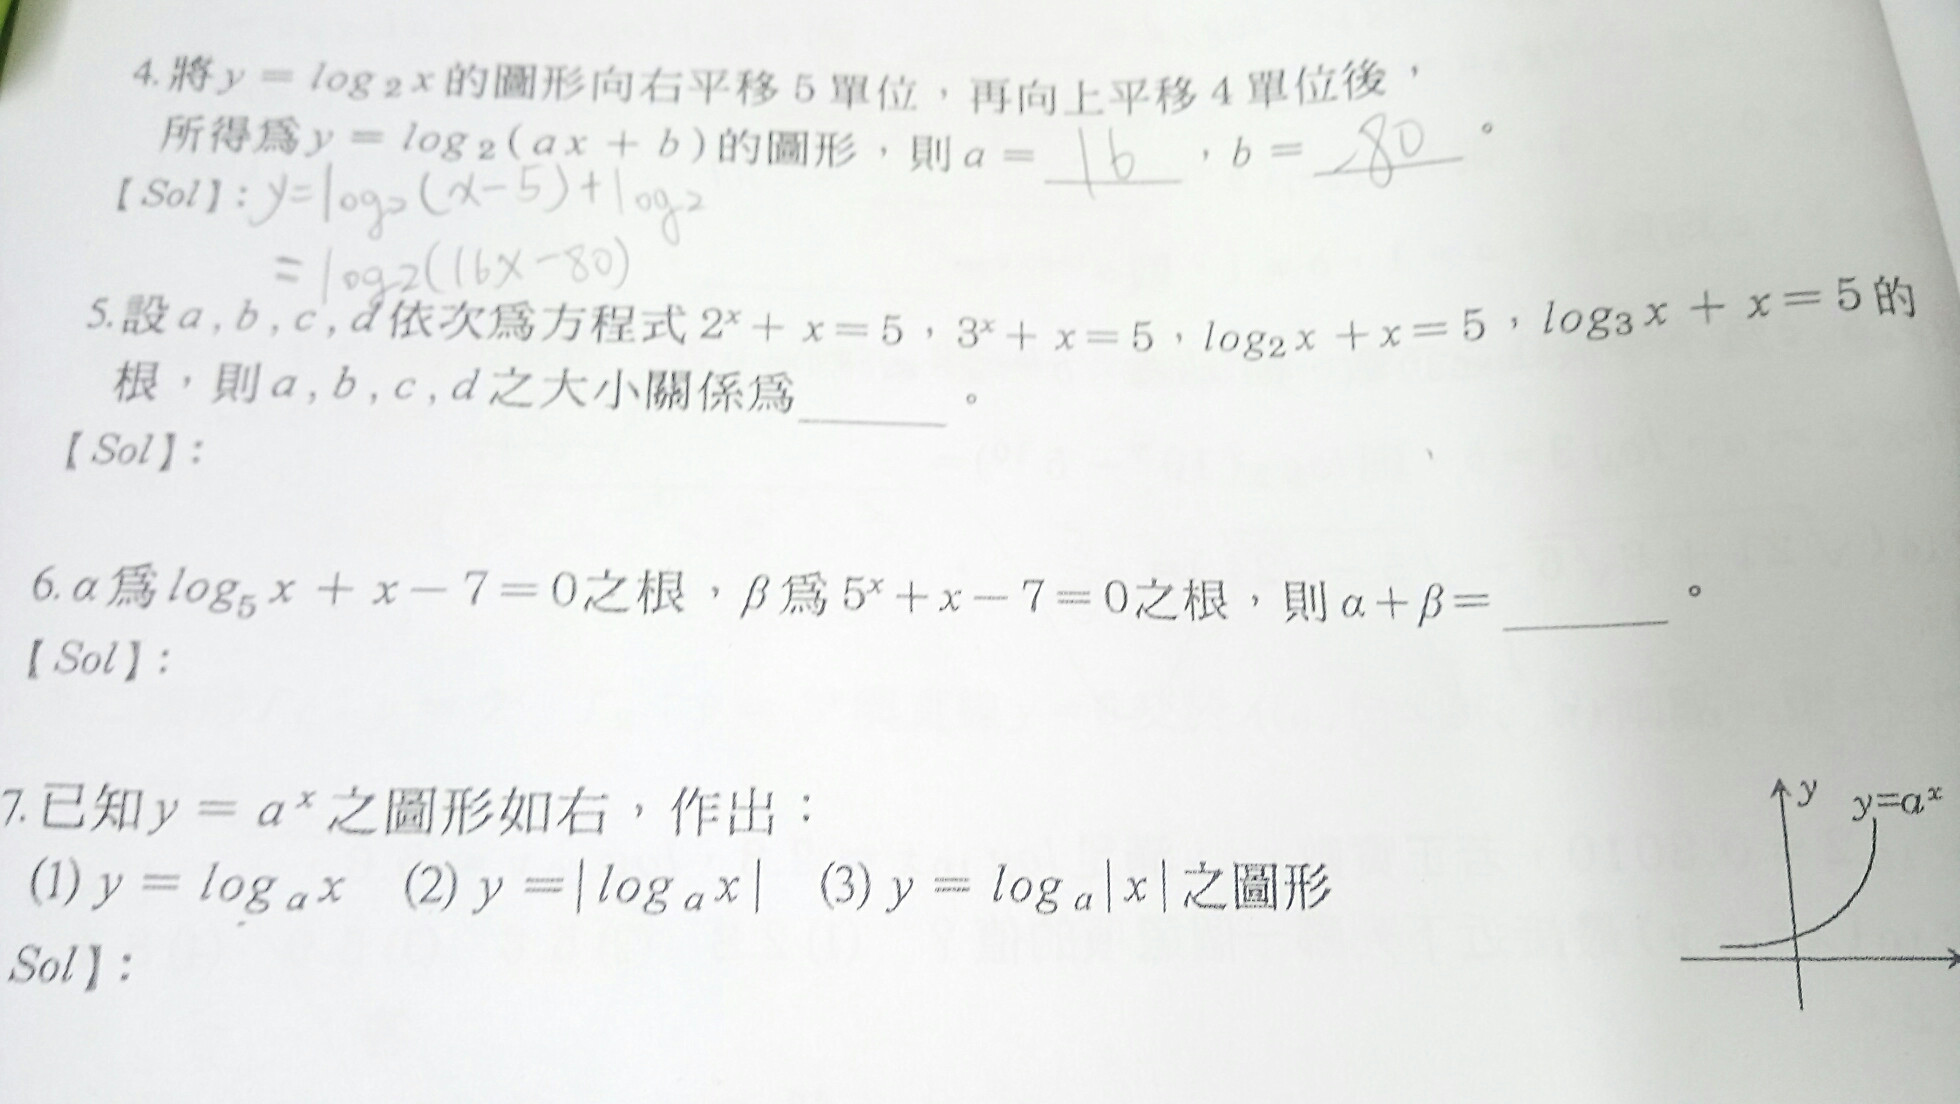 4. 將 y = log₂x 的圖形向右平移 5 單位，再向上平移 4 單位後，
所得為 y = log₂(ax + b) 的圖形，則 a = 16，b = -80。
【Sol】: y=log₂(x-5)+log₂
= log2(16x-80)
5. 設 a , b , c , d 依次為方程式 2ˣ + x = 5，3ˣ + x = 5，log₂x + x = 5，log₃x + x = 5 的
根，則 a , b , c , d 之大小關係為______。
【Sol】:
6. α 為 log₅x + x − 7 = 0 之根，β 為 5ˣ + x − 7 = 0 之根，則 α + β = ______。
【Sol】:
7. 已知 y = aˣ 之圖形如右，作出：
(1) y = logₐx (2) y = |logₐx| (3) y = logₐ|x| 之圖形
Sol】:
y
y=aˣ